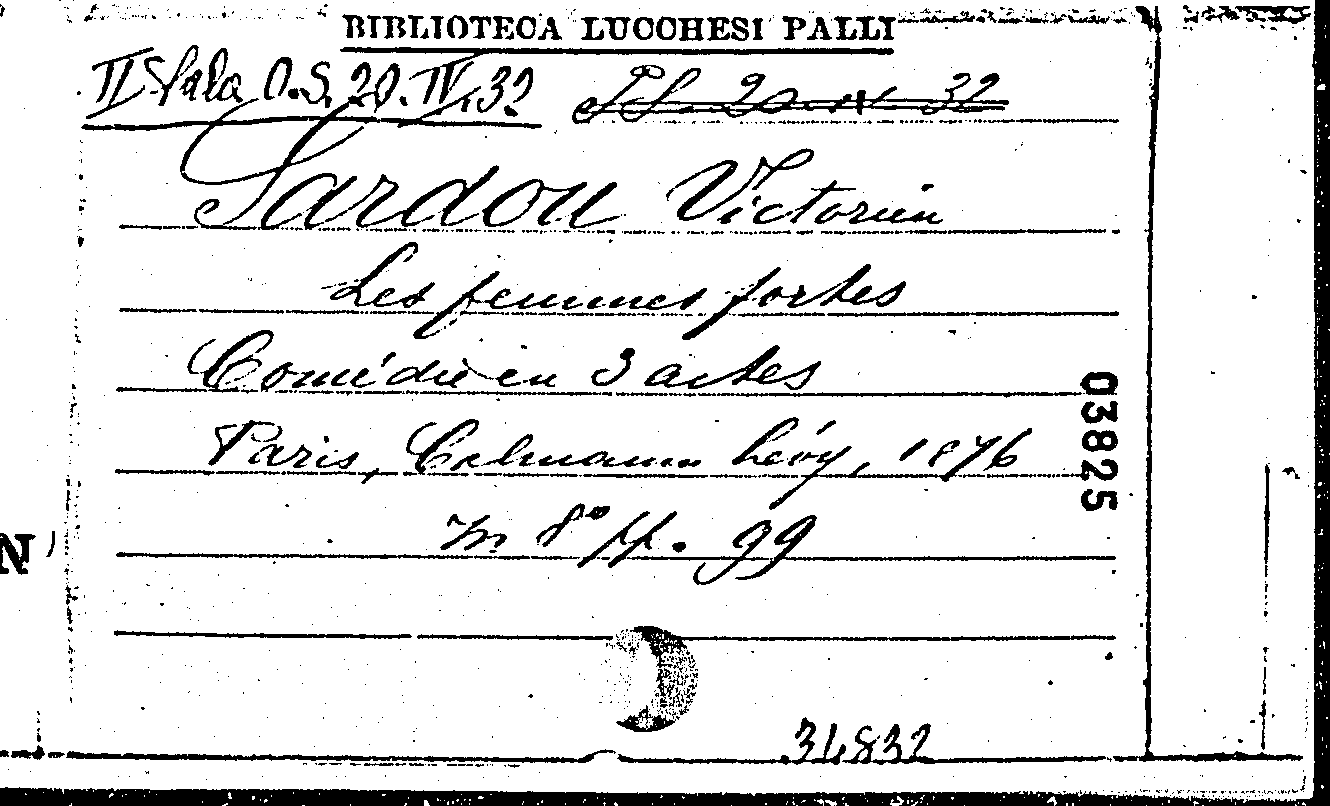 BIBLIOTECA LUCCHESI PALLI
II Sala O.S. 20. IV. 32
Sardou Victorien
Les femmes fortes
Comédie en 3 actes
Paris, Calmann Lévy, 1876
in 8° pp. 99
03825
34832
N